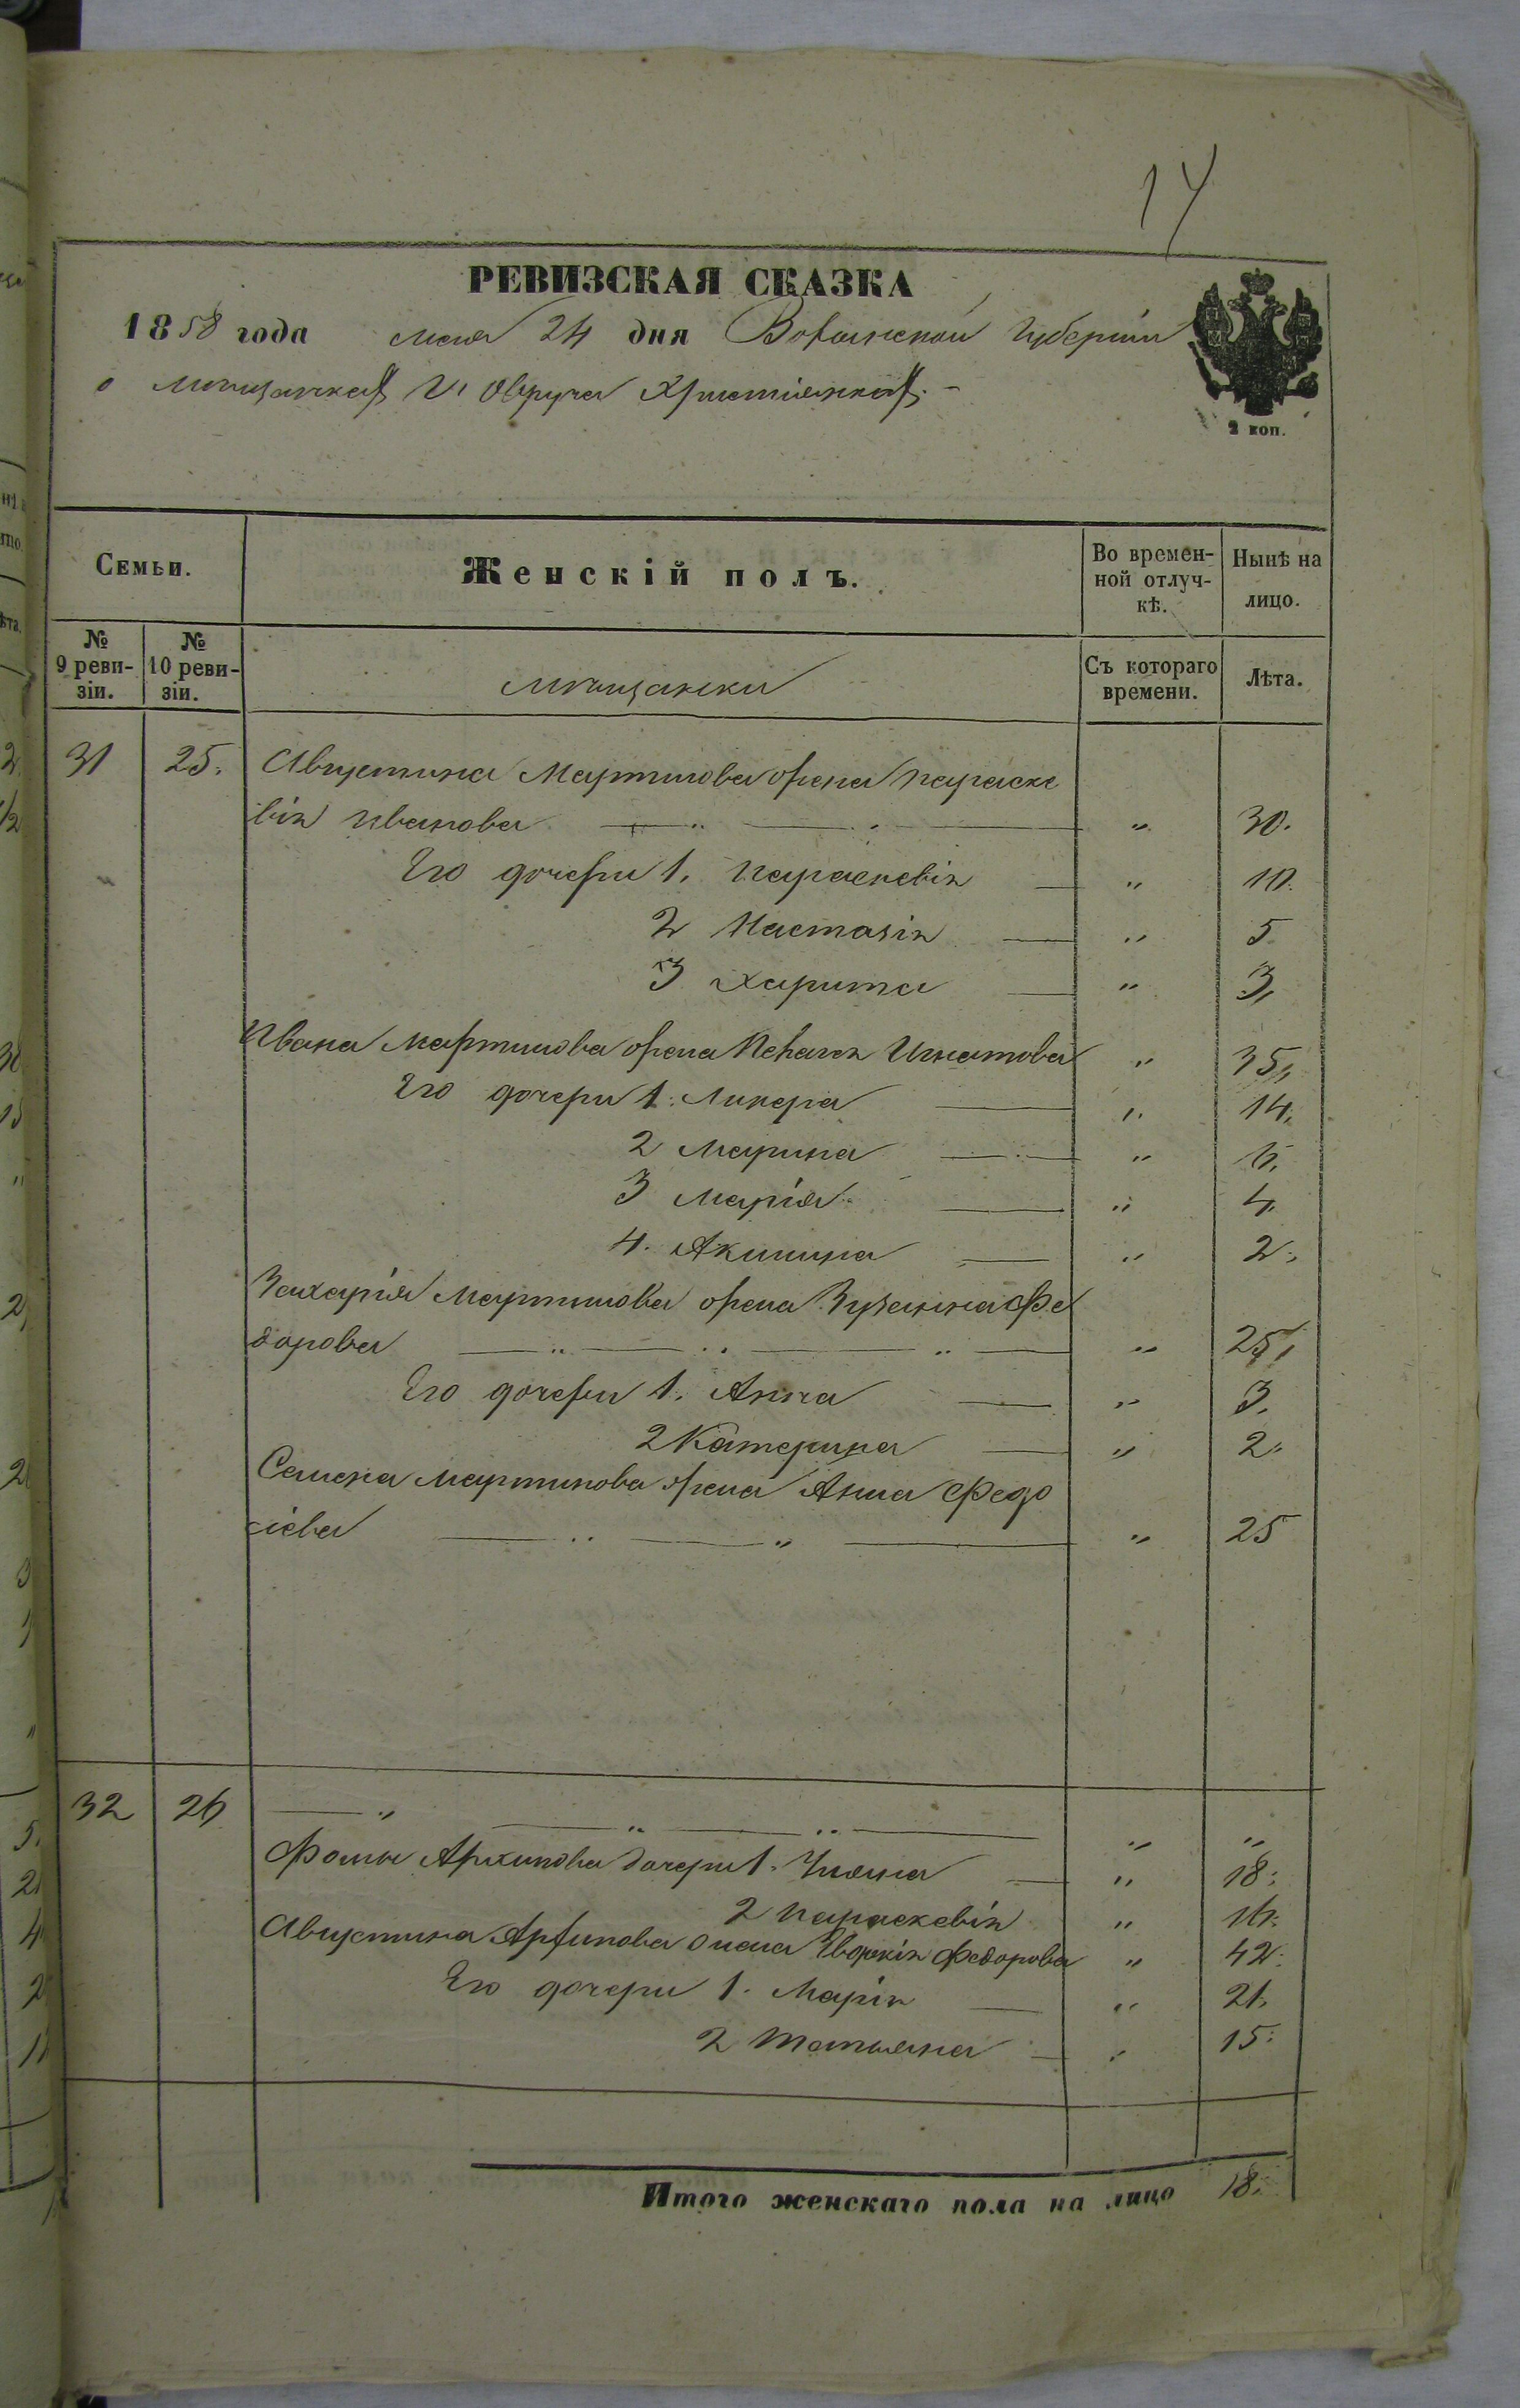 14
РЕВИЗСКАЯ СКАЗКА
1858 года мая 24 дня Волынской губерніи
о мѣщанкахъ г. Овруча Христіянкахъ.
2 коп.
Семьи. Женскій полъ. Во времен-ной отлуч-кѣ. Нынѣ на лицо.
№ 9 реви-зіи. № 10 реви-зіи. мѣщанки Съ котораго времени. Лѣта.
31 25. Августина Мартинова жена Параске
вія Иванова " 30.
Его дочери 1. Параскевія " 10.
2 Настазія " 5
3 Харита " 3,
Ивана Мартинова жена Пелагея Игнатова " 35,
Его дочери 1. Ликера " 14.
2 Марина " 6.
3 Марія " 4.
4. Акилина " 2.
Захарія Мартинова жена Зузанна Фе
дорова " 25,
Его дочери 1. Анна " 3.
2 Катерина " 2.
Семена Мартинова жена Анна Федо
сіева " 25
32 26 " " "
Фомы Архипова дочери 1. Уляна " 18.
2 Параскевія " 16.
Августина Архипова жена Евдокія Федорова " 42.
Его дочери 1. Марія " 21.
2 Татьяна " 15.
Итого женскаго пола на лицо 18.